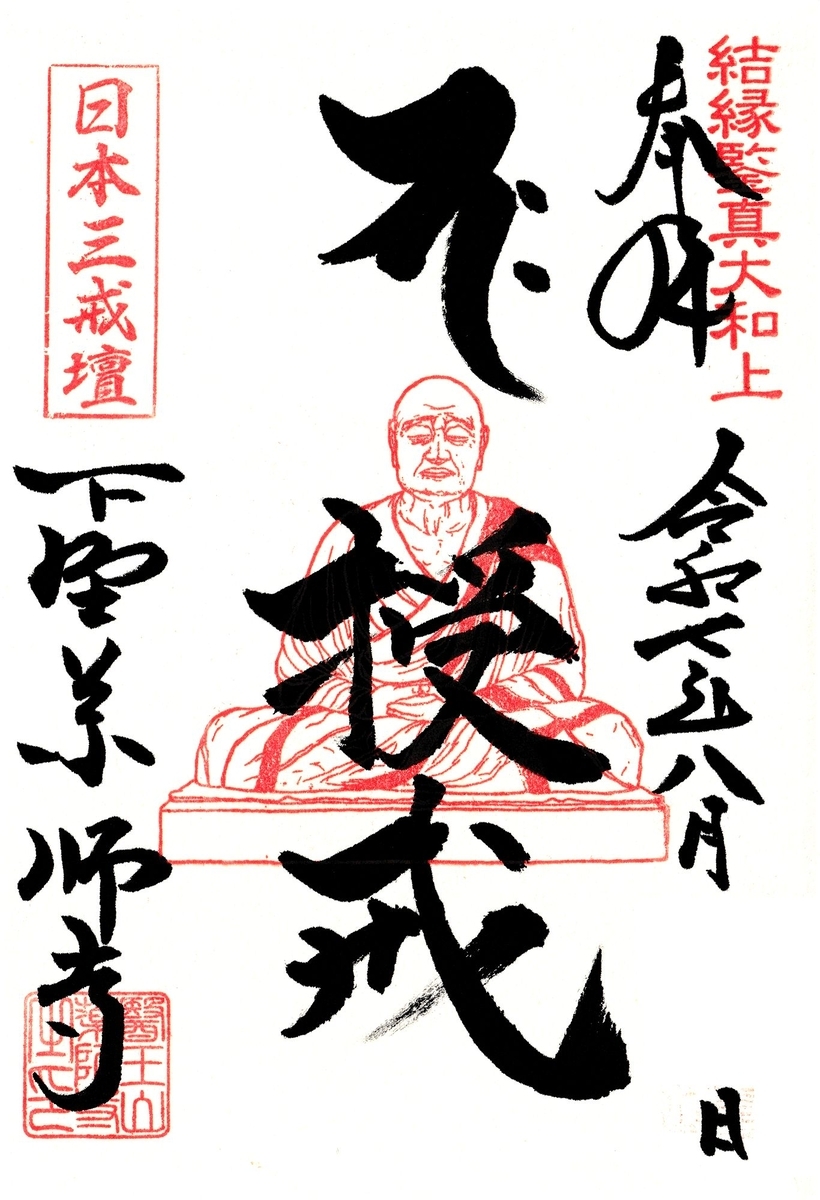 結縁鑒真大和上
奉拝
令和七年八月 日
授戒
日本三戒壇
下埜薬師寺
醫王山